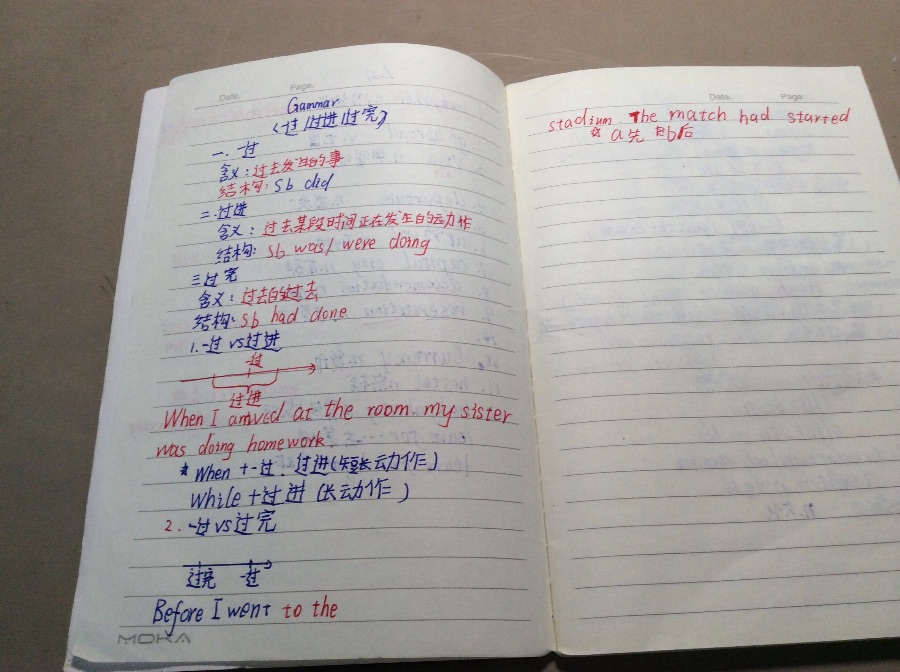 Date. Page.
Gammar
〈一过/过进/过完〉
一. 一过
含义:过去发生的事
结构: Sb did
二. 过进
含义: 过去某段时间正在发生的动作
结构: Sb was/ were doing
三 过完
含义: 过去的过去
结构: Sb had done
1. 一过 vs 过进
一过
过进
When I arrived at the room. my sister
was doing homework
* When + 一过. 过进(短长动作)
While + 过进 (长动作)
2. 一过 vs 过完
过完 一过
Before I went to the
MOKA
Date. Page.
stadium The match had started
☆ a先 b后